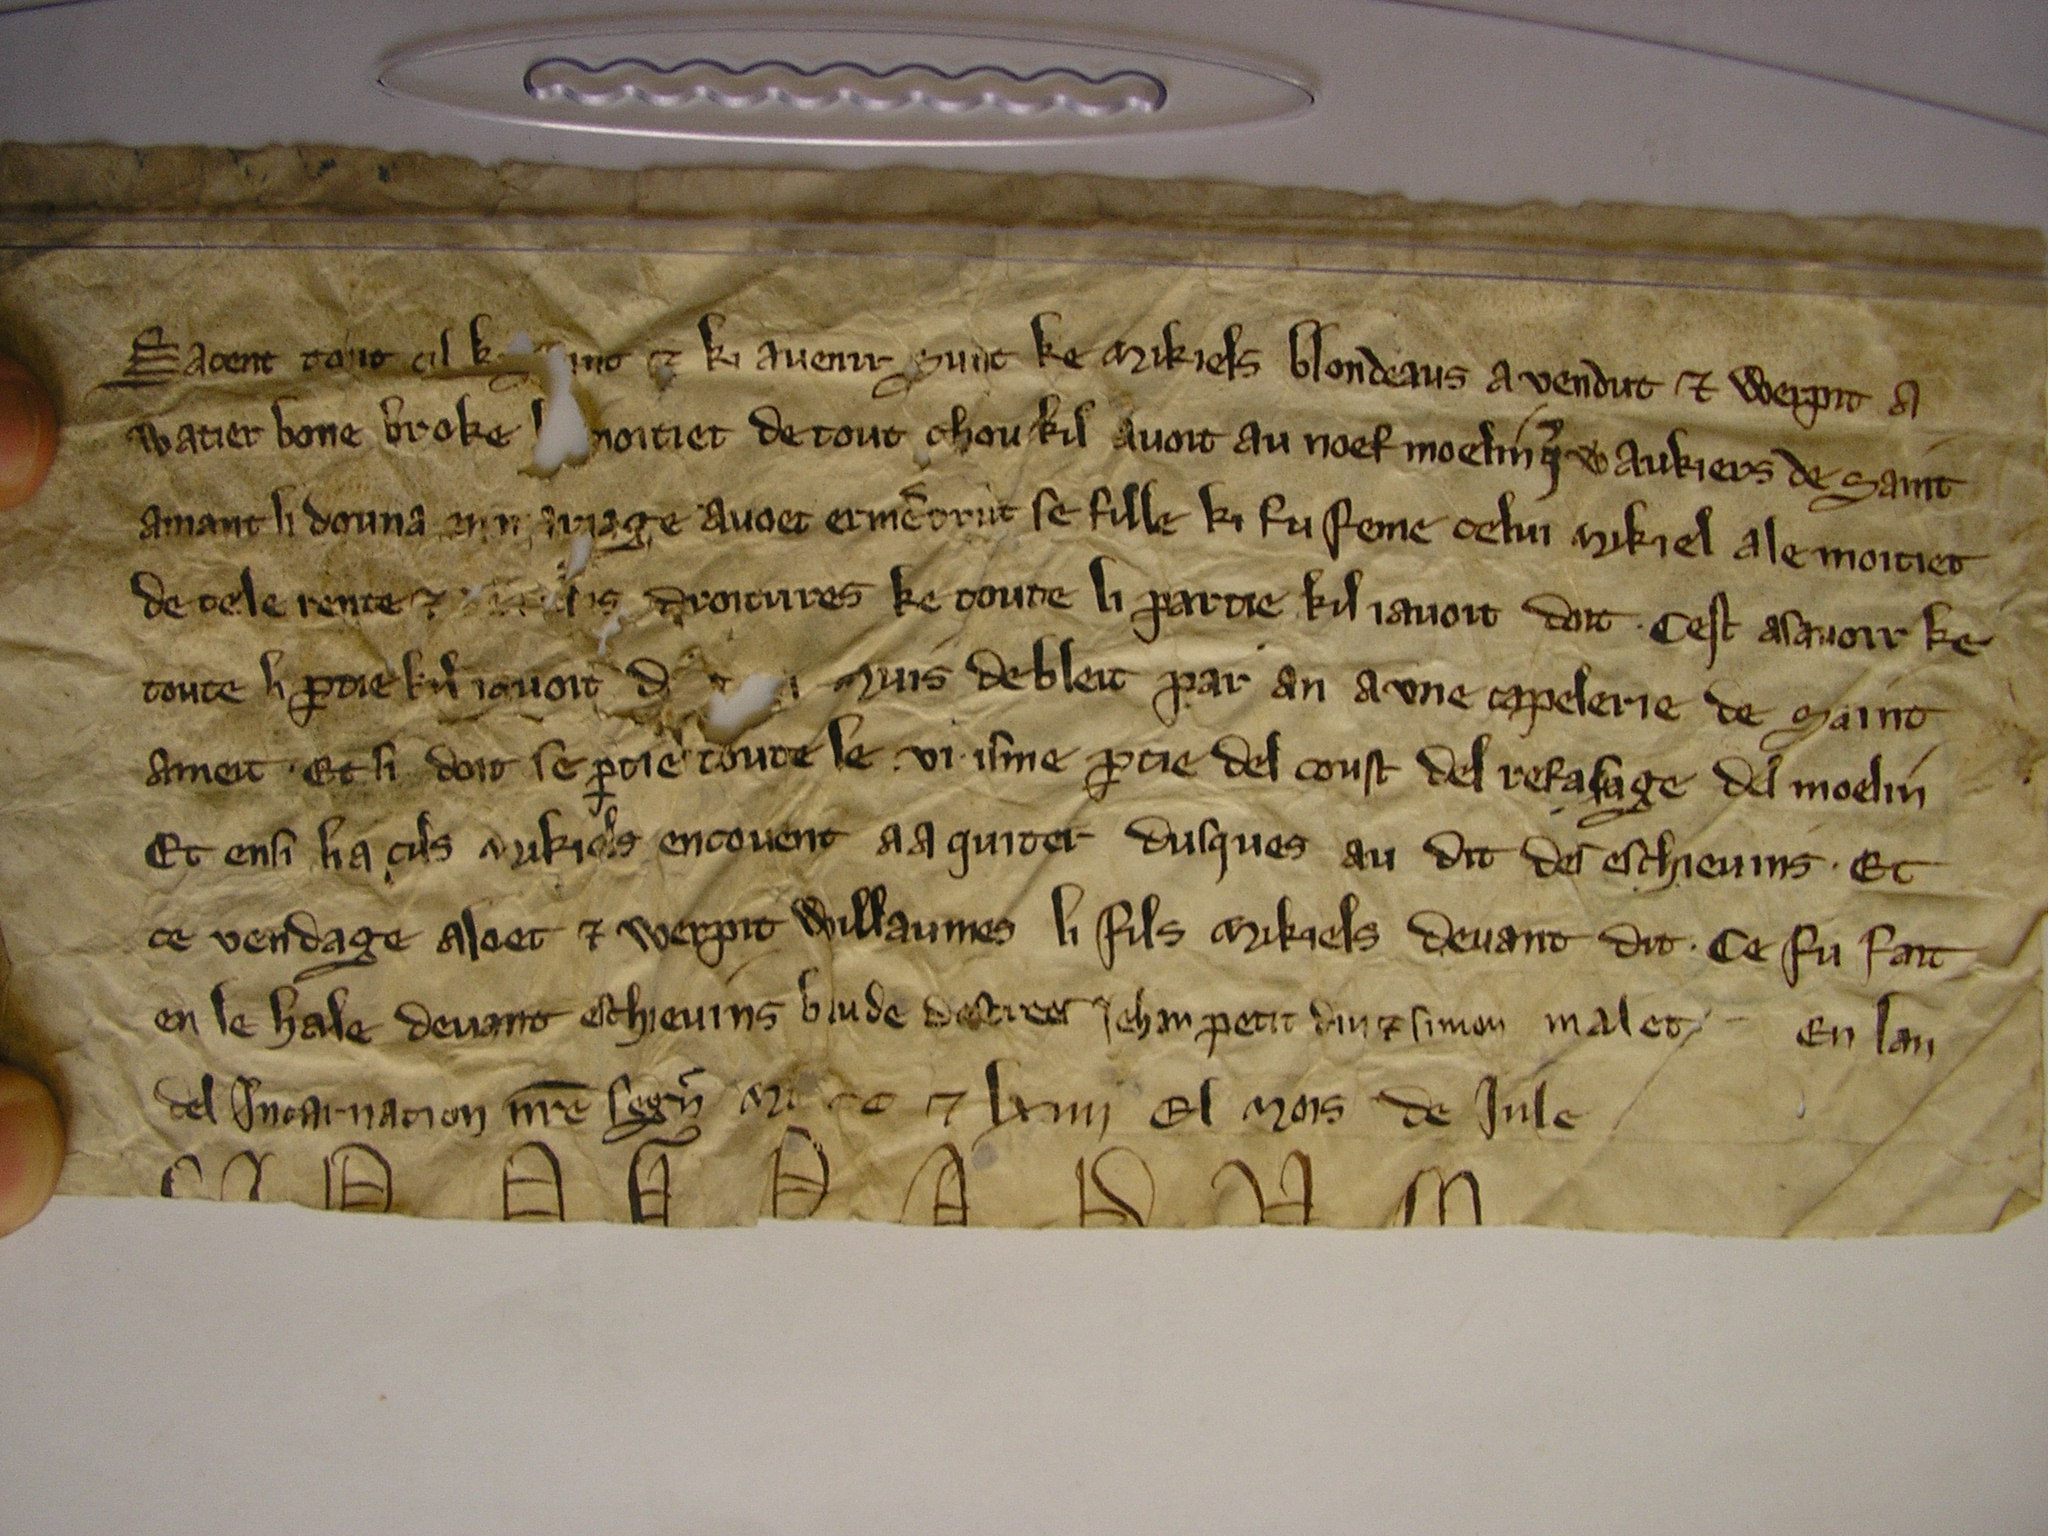 Sacent tout cil k sunt ⁊ ki avenir sunt ke Mikiels blondeaus a vendut ⁊ Werpit a
watier bone broke moitiet de tout chou kil avoit au noef moelin waukiers de saint
amant li douna mariage avoec erme̅trut se fille ki fu feme celui Mikiel a le moitiet
de tele rente ⁊ droitures ke toute li partie kil iavoit doit . Cest asavoir ke
toute li ptie kil iavoit muis de bleit par an a une capelerie de saint
ameit . Et si doit se ptie toute le .vi. isme ptie del coust del refasage del moelin
Et ensi li a cils Mikiels encouent a aquiter dusques au dit des eschievins . Et
ce vendage a loet ⁊ werpit Willaumes li fils Mikiels devant dit . Ce fu fait
en le hale devant eschievins Jehan petit ⁊ simon malet En lan
del Incarnation nr̅e segn̅ M cc ⁊ lxiiii El mois de Jule